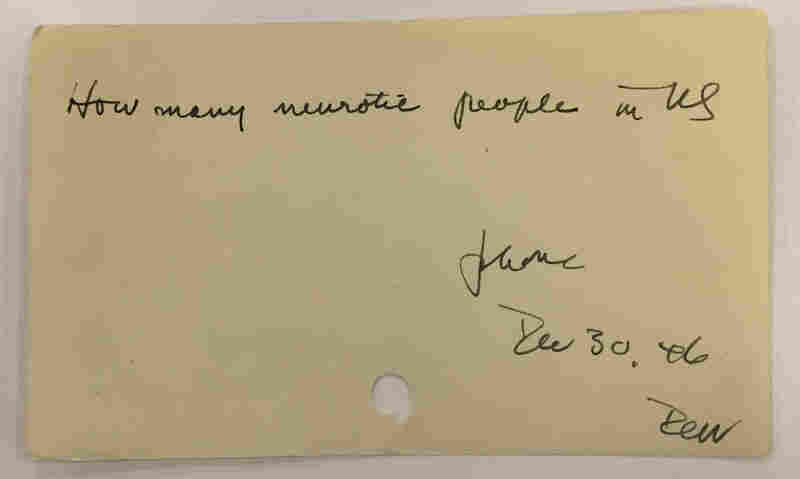 How many neurotic people in US
phone
Dec 30, 46
REW